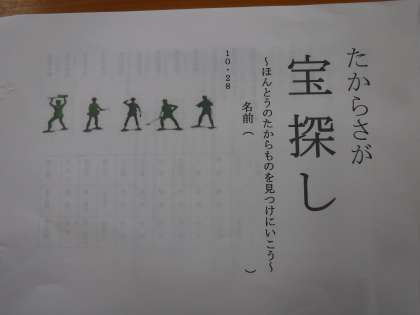 たからさが
宝探し
～ほんとうのたからものを見つけにいこう～
10・28
名前（　　　　）